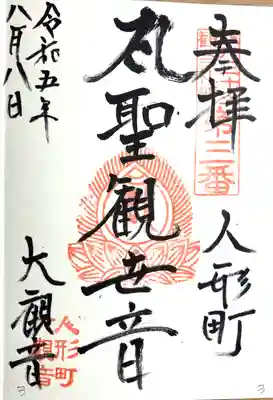 奉拝
第三番
人形町
聖観世音
令和五年
八月八日
大観音
人形町
3
3